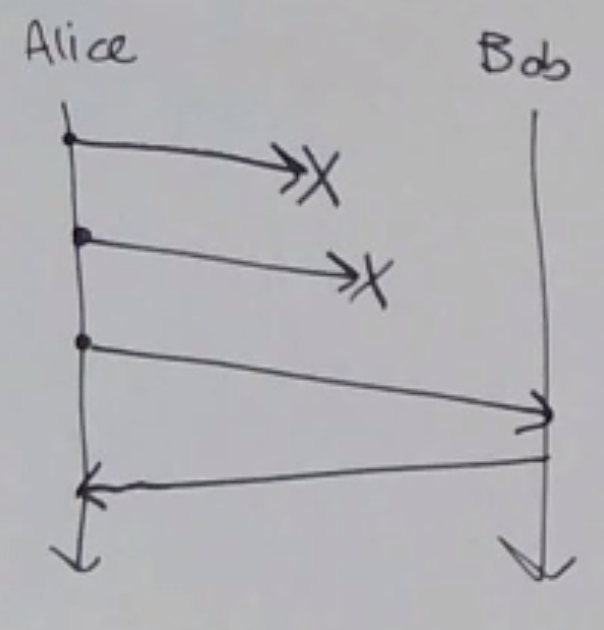 Alice
Bob
X
X